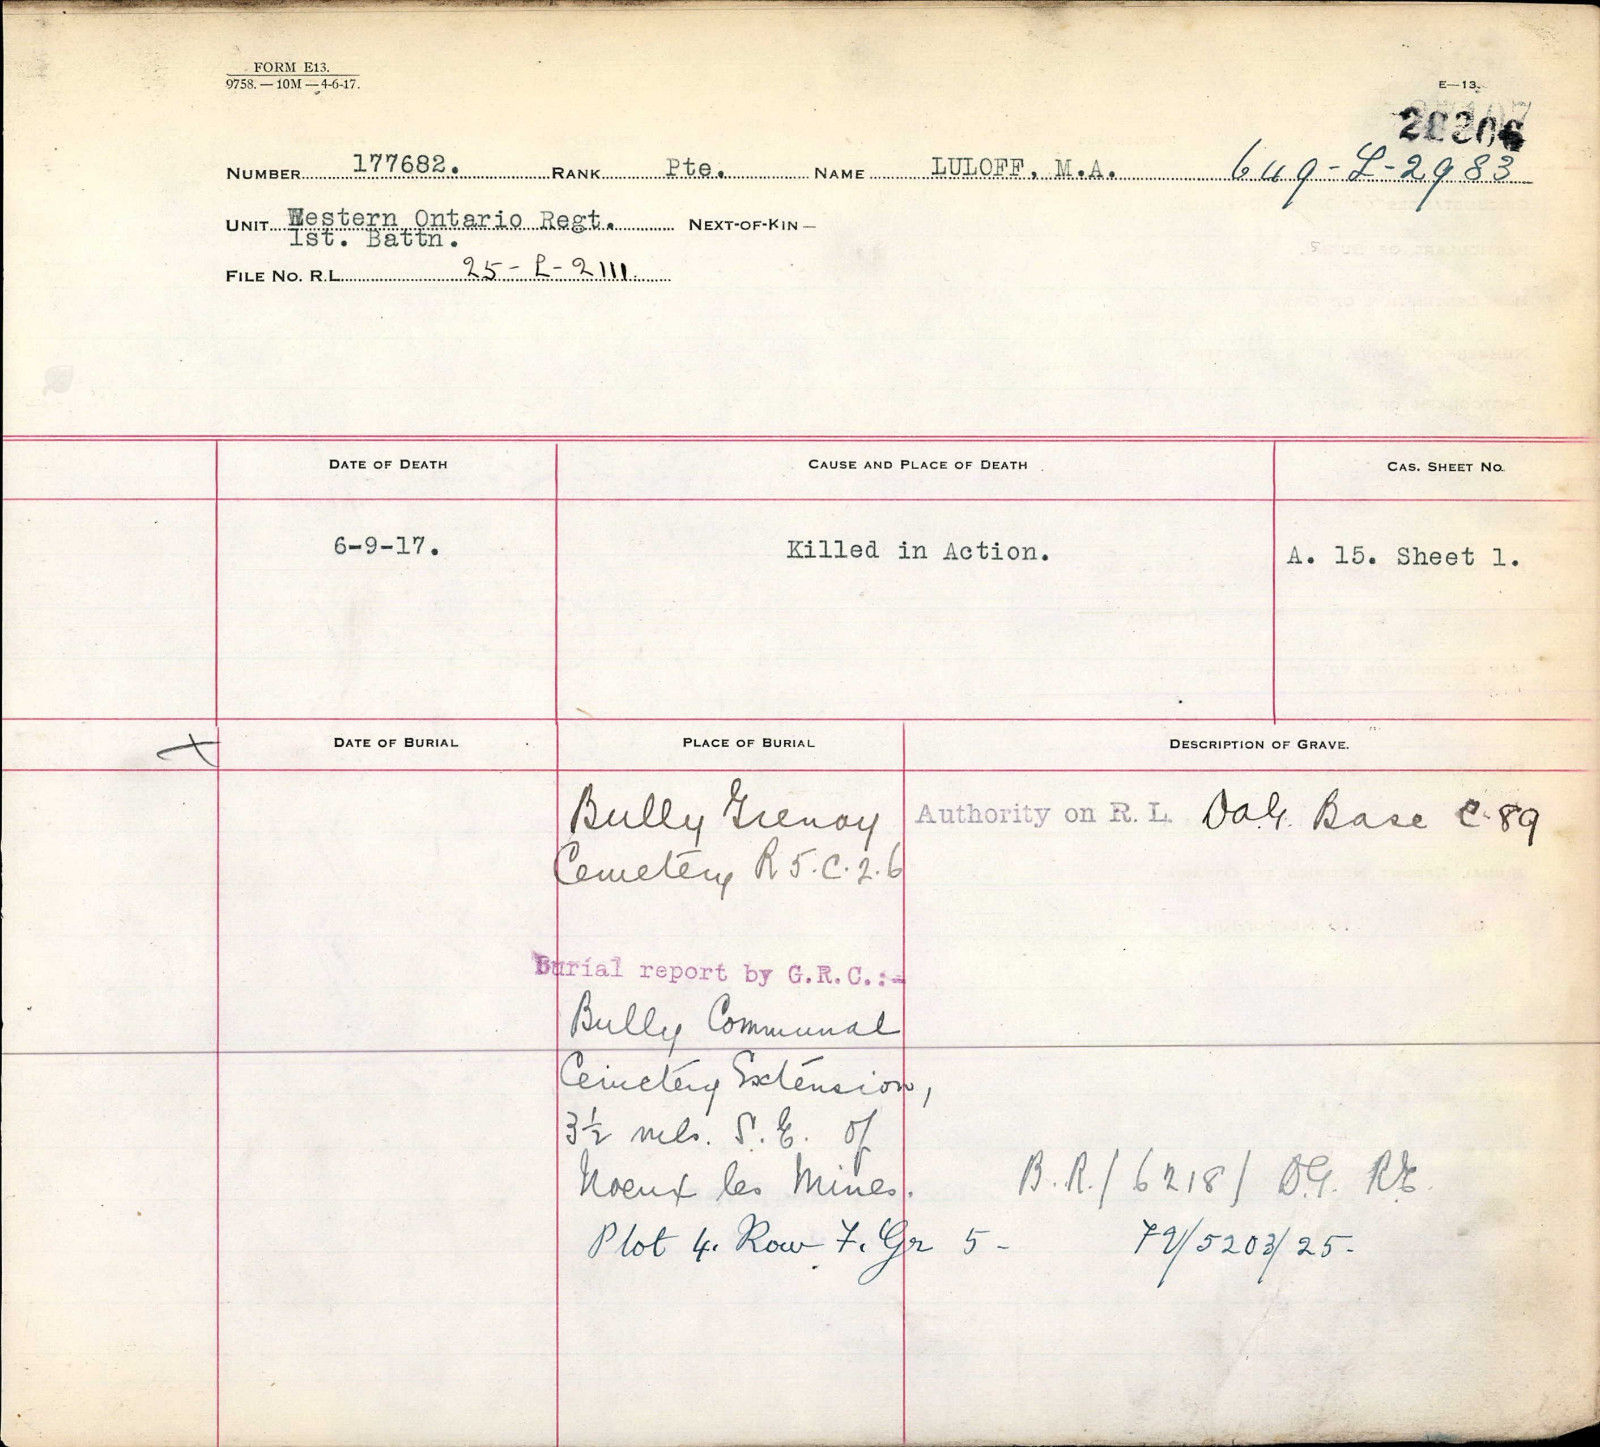 FORM E13.
9758. — 10M — 4-6-17.
E—13.
NUMBER 177682. RANK Pte. NAME LULOFF, M.A. 649-L-2983
UNIT Western Ontario Regt. NEXT-OF-KIN —
1st. Battn.
FILE NO. R.L. 25-L-2111.
DATE OF DEATH CAUSE AND PLACE OF DEATH CAS. SHEET NO.
6-9-17. Killed in Action. A. 15. Sheet 1.
DATE OF BURIAL PLACE OF BURIAL DESCRIPTION OF GRAVE.
Bully Grenay Authority on R. L. Base C.89
Cemetery R 5.C.2.6
Burial report by G.R.C.:-
Bully Communal
Cemetery Extension,
3½ mls. S.E. of
Noeux les Mines. B.R./6218/
Plot 4. Row 7. Gr 5 - /5203/25-